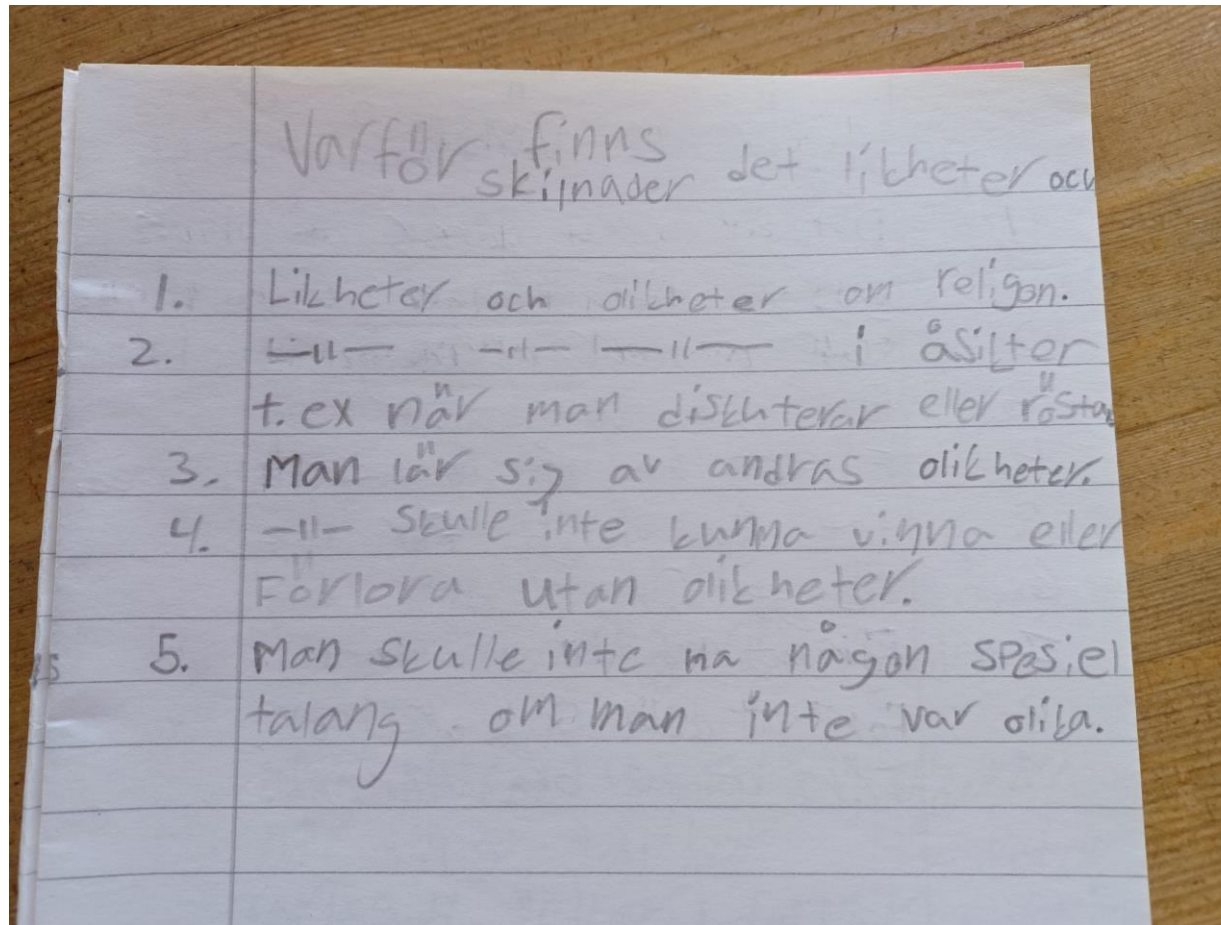 Varför finns det likheter och
skilnader
1. Likheter och olikheter om religon.
2. —11— —11— —11— i åsikter
t.ex när man diskuterar eller röstar
3. Man lär sig av andras olikheter.
4. —11— skulle inte kunna vinna eller
Förlora utan olikheter.
5. Man skulle inte ha någon spesiel
talang om man inte var olika.